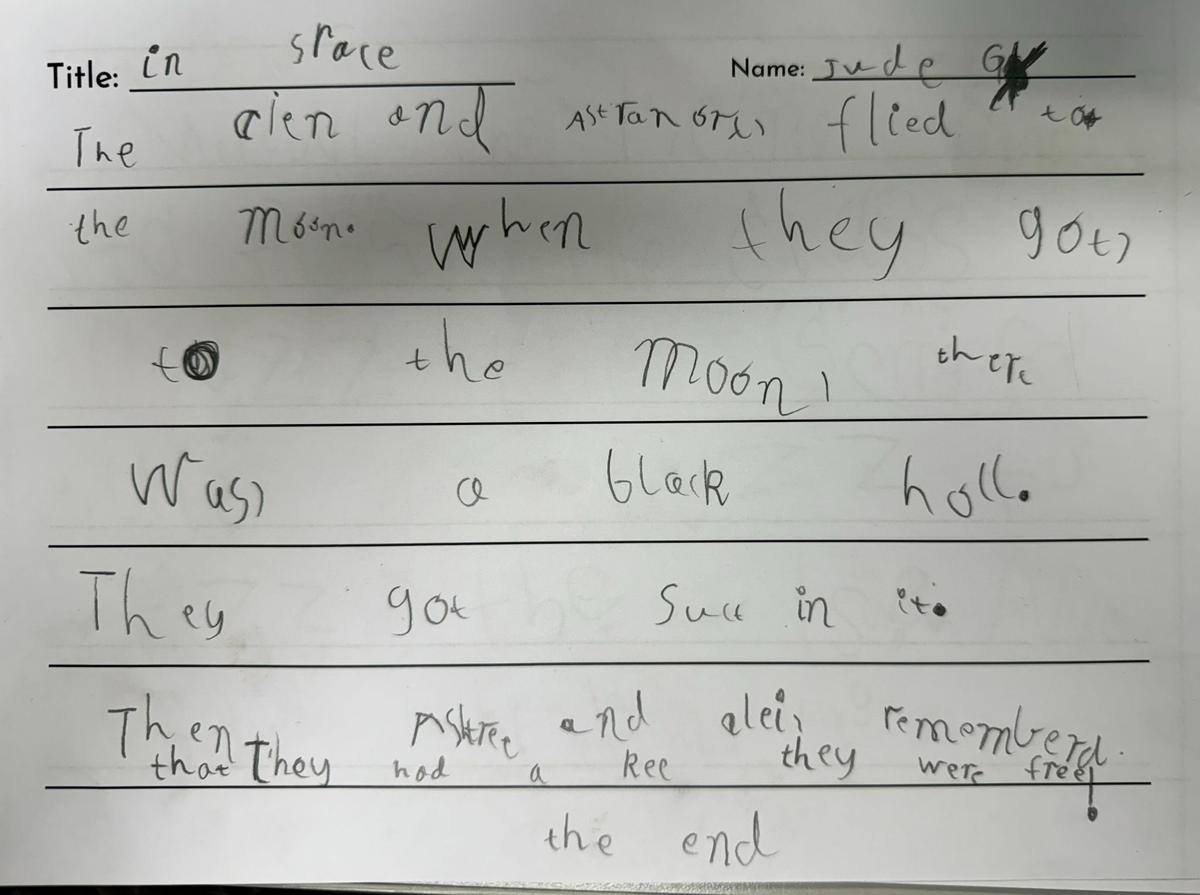 Title: in space
Name: Jude G
The alen and flied to
the moon. When they got
to the moon, there
Was a black holl.
They got Suct in it.
Then Astree and alei, rememberd.
that they had a kee they were free!
the end